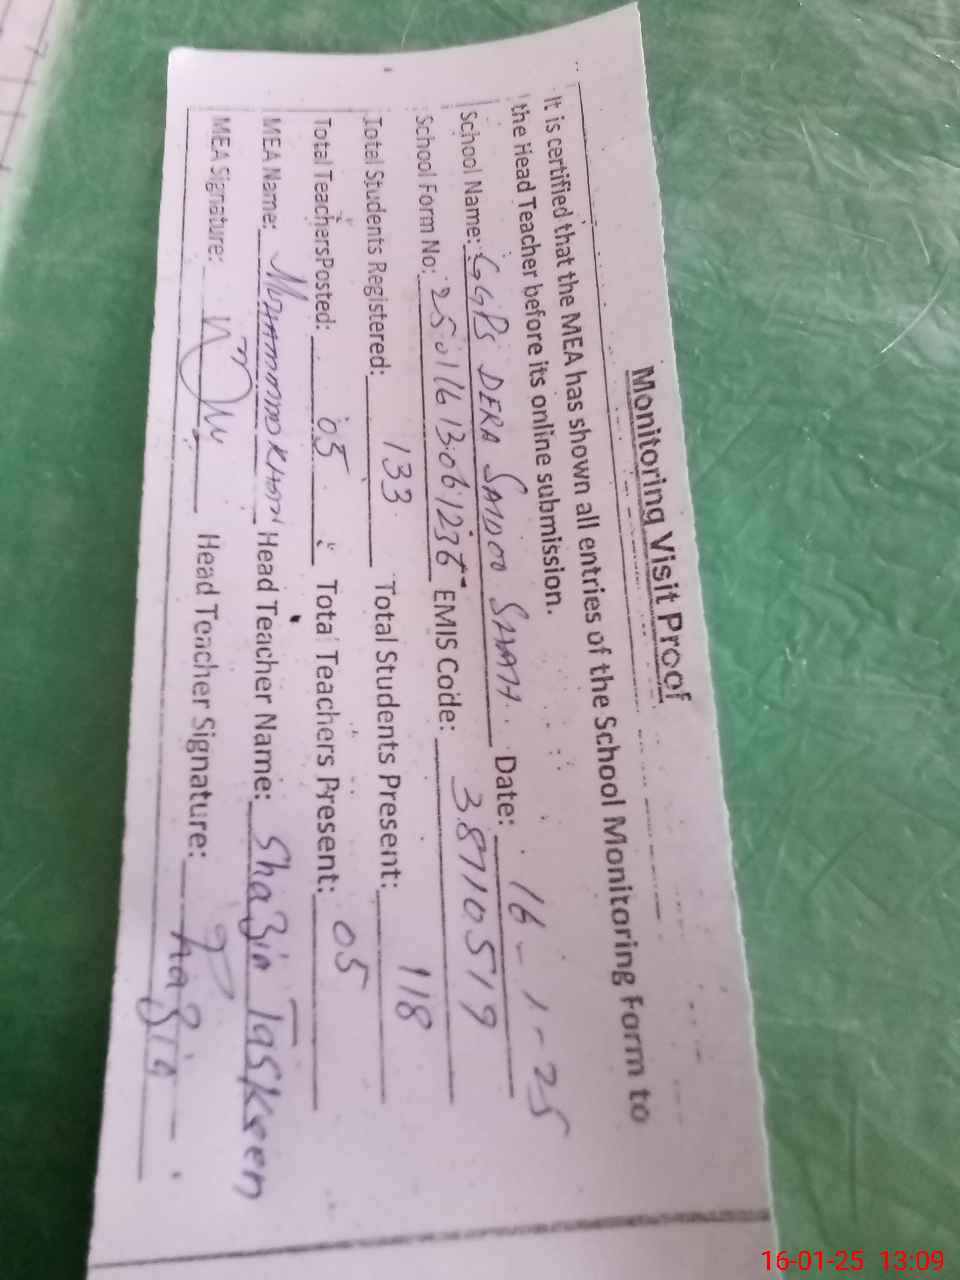 Monitoring Visit Proof
It is certified that the MEA has shown all entries of the School Monitoring Form to
the Head Teacher before its online submission.
School Name: GGPS DERA SAIDOO SHAH Date: 16-1-25
School Form No: EMIS Code: 38710519
Total Students Registered: 133 Total Students Present: 118
Total TeachersPosted: 05 Total Teachers Present: 05
MEA Name: MUHAMMAD KHAN Head Teacher Name: Shazia Taskeen
MEA Signature: Head Teacher Signature: Shazia
16-01-25 13:09